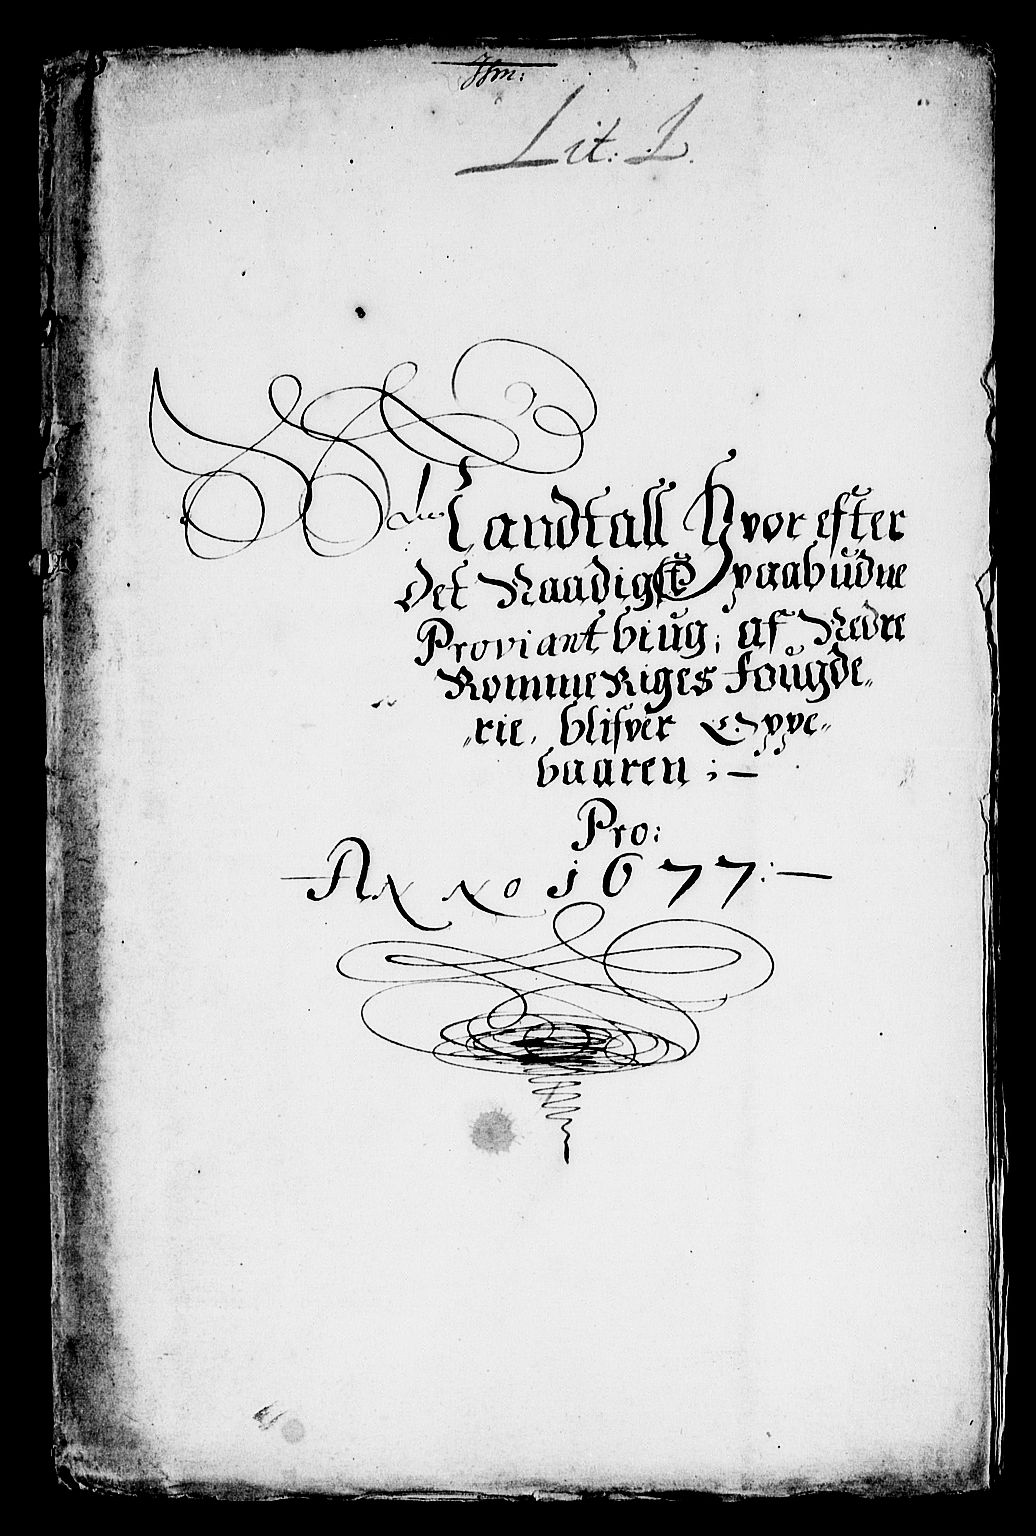 Lit: L.
Landtall Hvor efter
det Naadigste paabudne
Proviant biug, af Nedre
Romme Riges fougde„
„rie, blifver Oppe„
baaren ; —
Pro:
— Anno 1677: —